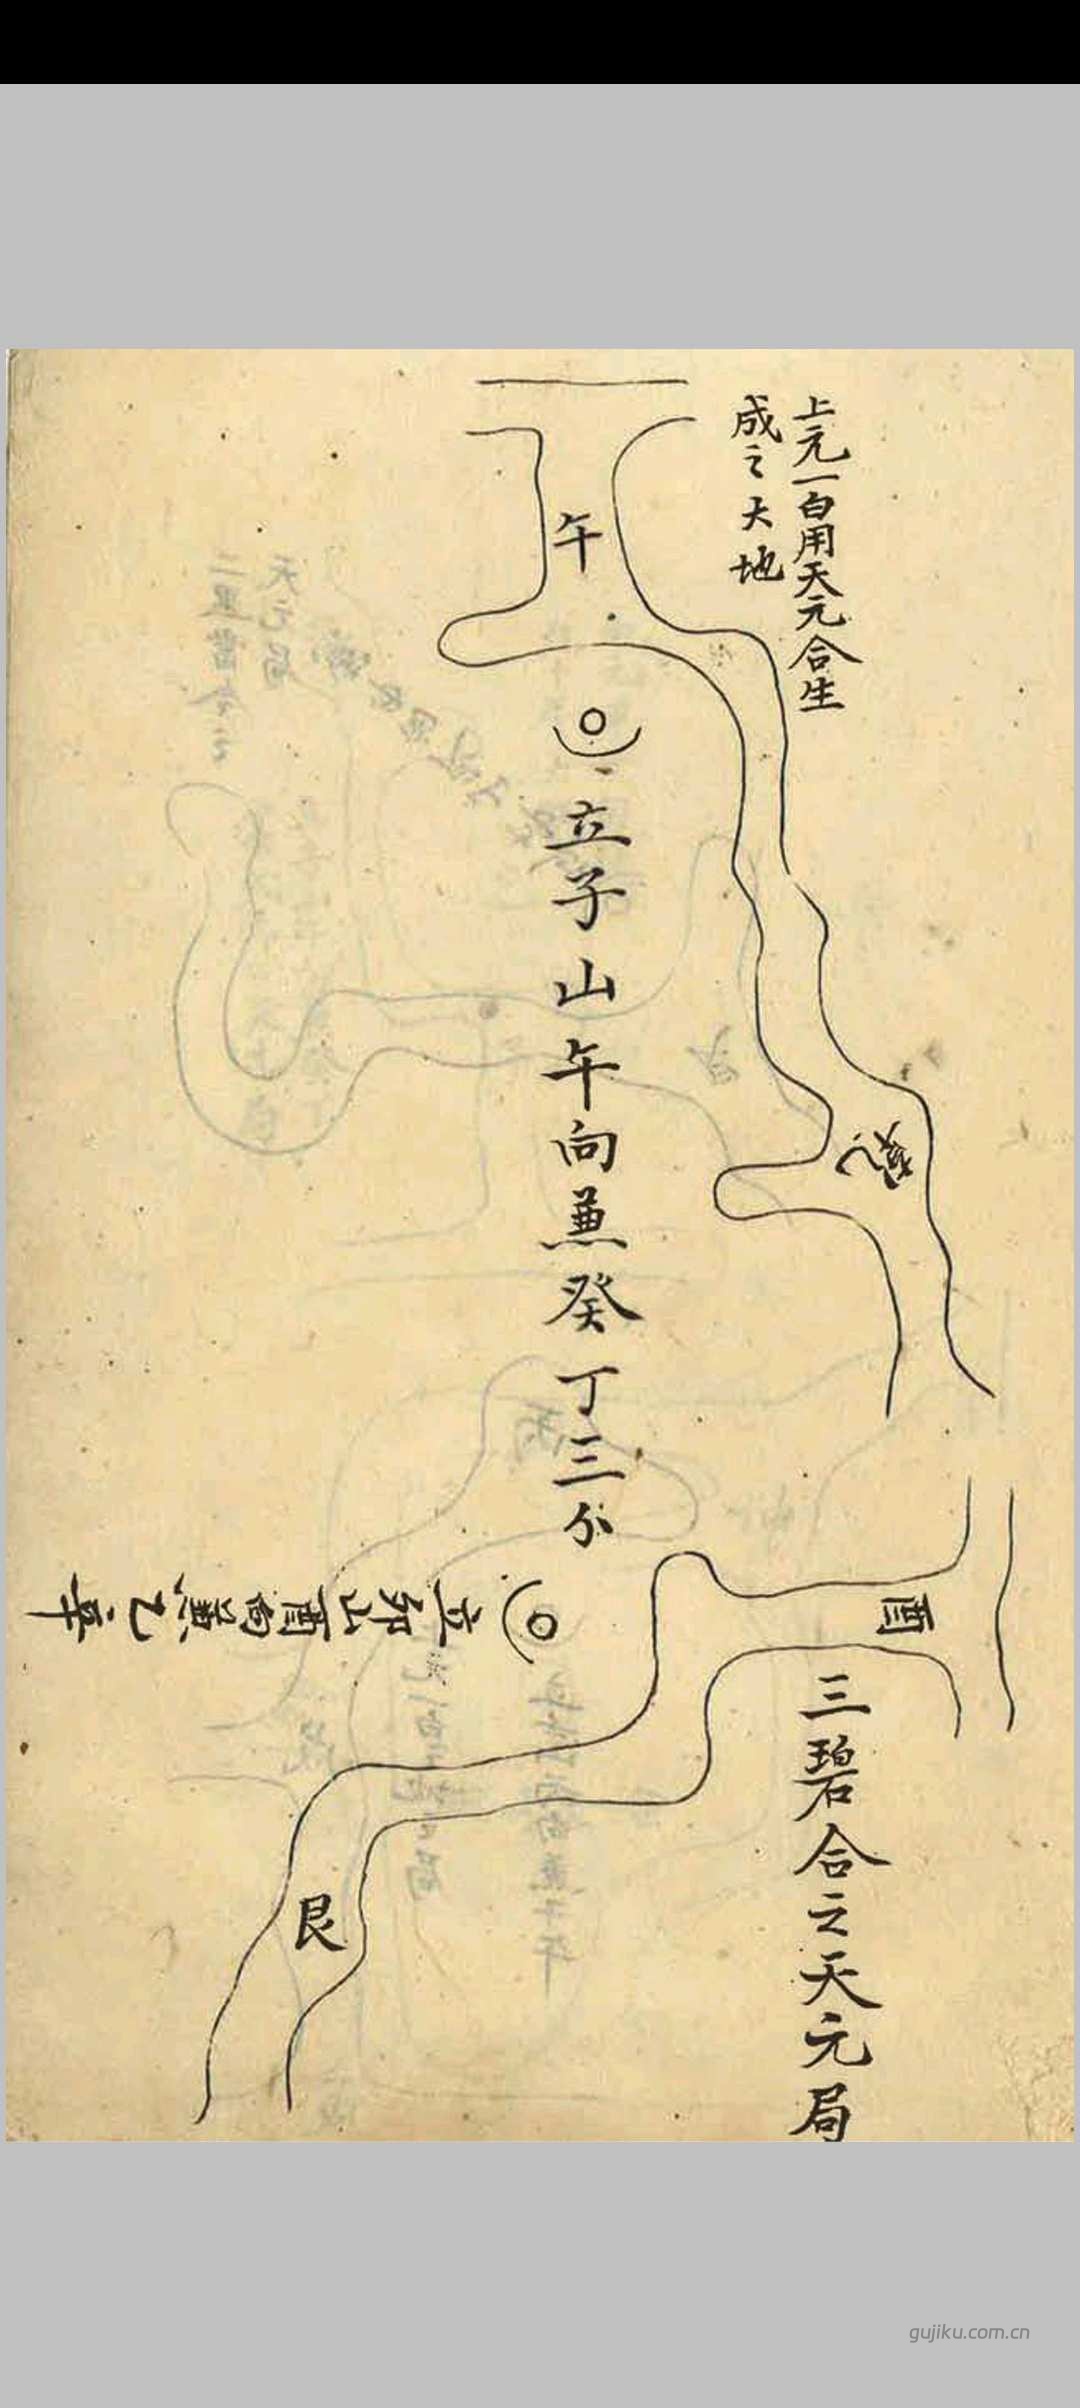 上元一白用天元合生
成之大地
午
立子山午向蒹癸丁三分
乾
酉
立卯山酉向蒹乙辛
三碧合之天元局
艮
gujiku.com.cn